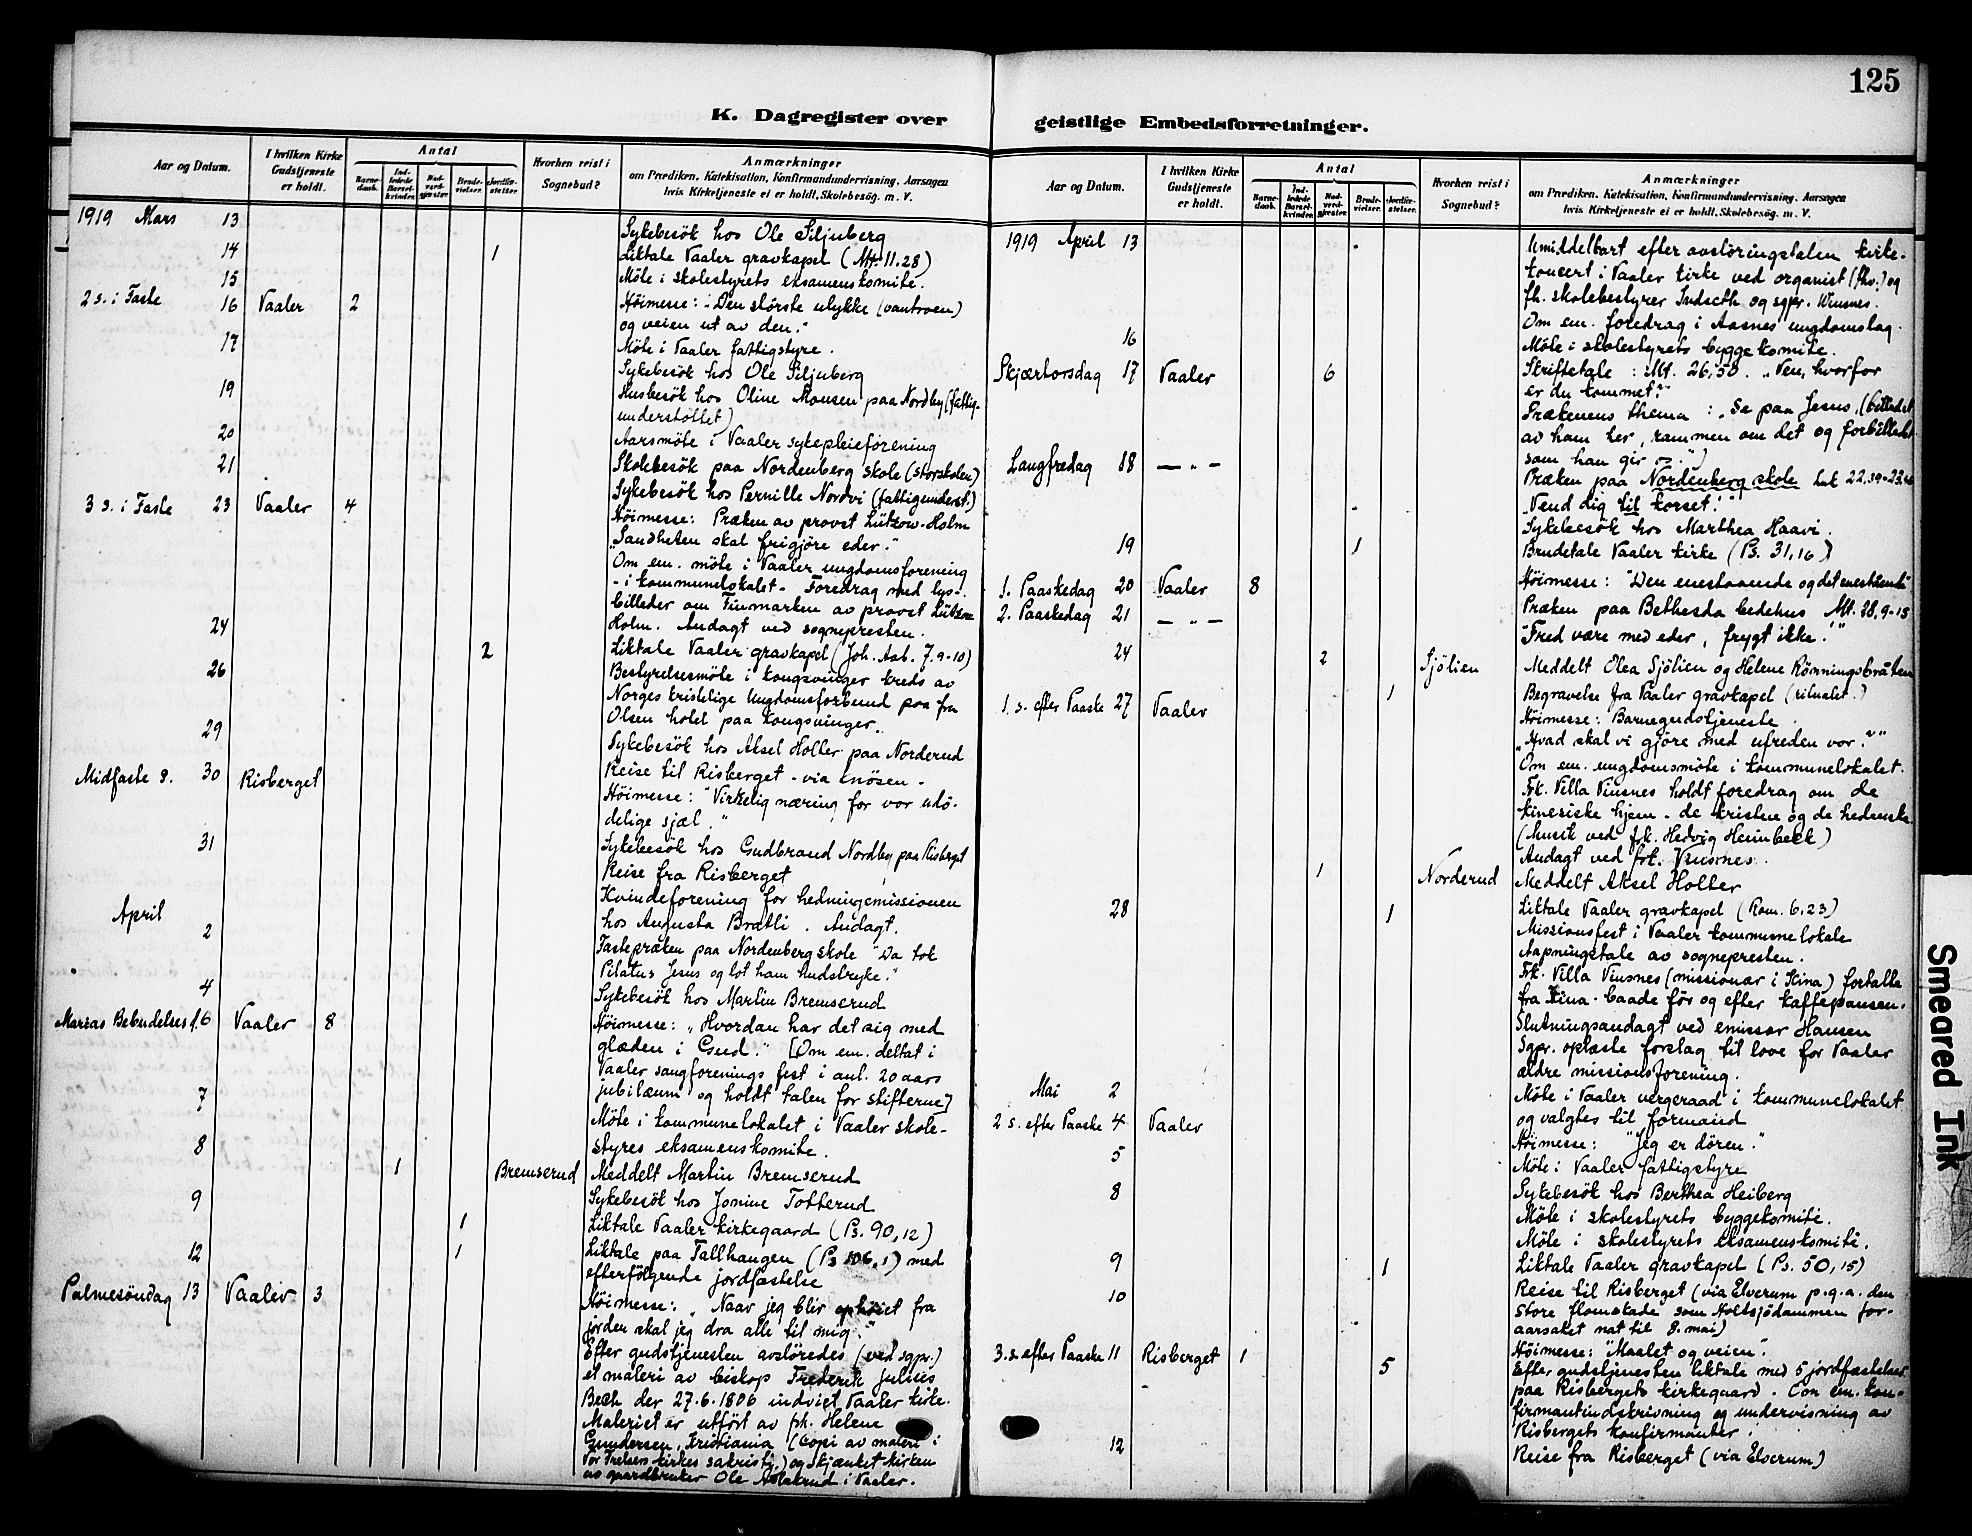 125
K. Dagregister over geistlige Embedsforretninger.
Aar og Datum.
I hvilken Kirke Gudstjeneste er holdt.
Antal
Barnedaab.
Indledede Barselkvinder.
Nadverdgjester
Brudevielser.
Jordfæstelser
Hvorhen reist i Sognebud?
Anmærkninger
om Prædiken, Katekisation, Konfirmandundervisning, Aarsagen
hvis Kirketjeneste ei er holdt, Skolebesøg. m. V.
1919 Mars 13 Sykebesök hos Ole Siljuberg
14 1 Liktale Vaaler gravkapel (Mt. 11.28)
15 Möte i skolestyrets eksamenskomite.
2 s. i Faste 16 Vaaler 2 Höimesse: "Den störste ulykke (vantroen)
og veien ut av den."
17 Möte i Vaaler fattigstyre.
Sykebesök hos Ole Siljuberg
19 Husbesök hos Oline Monsen paa Nordby (fattig-
understöttet)
20 Aarsmöte i Vaaler sykepleieforening
21 Skolebesök paa Nordenberg skole (storskolen)
Sykebesök hos Pernille Nordvi (fattigunderst.)
3 s. i Faste 23 Vaaler 4 Höimesse: Præken av provst Lützow-Holm
"Sandheten skal frigjöre eder."
Om em. möte i Vaaler ungdomsforening
- i kommunelokalet - Foredrag med lys-
billeder om Finmarken av provst Lützow
Holm. Andagt ved sognepresten.
24 2 Liktale Vaaler gravkapel (Joh. Aab. 7.9-10)
26 Bestyrelsesmöte i Kongsvinger kreds av
Norges kristelige Ungdomsforbund paa fru
Olsen hotel paa Kongsvinger.
29 Sykebesök hos Aksel Holter paa Norderud
Reise til Risberget - via Knösen -
Midfaste s. 30 Risberget Höimesse: "Virkelig næring for vor udö-
delige sjæl."
31 Sykebesök hos Gudbrand Nordby paa Risberget
Reise fra Risberget
April Kvindeforening for hedningemissionen
hos Augusta Bratli. Andagt.
2 Fastepræken paa Nordenberg skole "Da tok
Pilatus Jesus og lot ham hudstryke."
4 Sykebesök hos Martin Bremserud
Marias Bebudelses f. 6 Vaaler 8 Höimesse: "Hvordan har det sig med
glæden i Gud." [Om em. deltat i
Vaaler sangforenings fest i anl. 20 aars
jubilæum og holdt talen for stifterne]
7 Möte i kommunelokalet i Vaaler skole-
styres eksamenskomite.
8 1 Bremserud Meddelt Martin Bremserud
Sykebesök hos Jonine Totterud
9 1 Liktale Vaaler kirkegaard (Ps. 90,12)
12 1 Liktale paa Tallhaugen (Ps 106,1) med
efterfölgende jordfæstelse
Palmesöndag 13 Vaaler 3 Höimesse: "Naar jeg blir ophöiet fra
jorden skal jeg dra alle til mig."
Efter gudstjenesten avslöredes (ved sgpr.)
et maleri av biskop Frederik Julius
Bech der 27.6.1806 indviet Vaaler kirke.
Maleriet er utfört av frk. Helene
Gundersen, Kristiania (copi av maleri i
Vor Frelsers kirkes sakristi.) og skjænket kirken
av gaardbruker Ole Aslakrud i Vaaler.
Aar og Datum.
I hvilken Kirke Gudstjeneste er holdt.
Antal
Barnedaab.
Indledede Barselkvinder.
Nadverdgjester
Brudevielser.
Jordfæstelser.
Hvorhen reist i Sognebud?
Anmærkninger
om Prædiken, Katekisation, Konfirmandundervisning, Aarsagen
hvis Kirketjeneste ei er holdt, Skolebesøg. m. V.
1919 April 13 Umiddelbart efter avslöringstalen kirke-
koncert i Vaaler kirke ved organist (fhv.) og
fh. skolebestyrer Indseth og sgpr. Vinsnes.
Om em. foredrag i Aasnes ungdomslag.
16 Möte i skolestyrets byggekomite.
Skjærtorsdag 17 Vaaler 6 Skriftetale: Mt. 26,50. "Ven, hvorfor
er du kommet?"
Prækenens thema: "Se paa Jesus, (billedet
av ham her, rammen om det og forbilledet
som han gir os.")
Langfredag 18 — " — Præken paa Nordenberg skole Luk 22.39-23.46
"Vend dig til korset!"
Sykebesök hos Marthea Haavi.
19 1 Brudetale Vaaler kirke (Ps. 31,16)
1. Paaskedag 20 Vaaler 8 Höimesse: "Den enestaaende og det eneste
2. Paaskedag 21 — " — Præken paa Bethesda bedehus Mt. 28,9-15
"Fred være med eder, frygt ikke!"
24 2 Sjölien Meddelt Elea Sjölien og Helene Rönningsbråten
1 Begravelse fra Vaaler gravkapel (ritualet.)
1. s. efter Paaske 27 Vaaler Höimesse: Barnegudstjeneste.
"Hvad skal vi gjöre med ufreden vor?"
Om em. ungdomsmöte i kommunelokalet.
Frk. Villa Vinsnes holdt foredrag om de
kinesiske hjem - de kristne og de hedenske
(Musik ved frk. Hedvig Heimbeck)
Andagt ved frk. Vinsnes.
1 Norderud Meddelt Aksel Holter
28 1 Liktale Vaaler gravkapel (Rom. 6,23)
Missionsfest i Vaaler kommunelokale
Aapningstale av sognepresten.
Frk. Villa Vinsnes (missionær i Kina) fortalte
fra Kina - baade för og efter kaffepausen.
Slutningsandagt ved emissær Hansen
Sgpr. oplæste forslag til love for Vaaler
ældre missionsforening.
Mai 2 Möte i Vaaler vergeraad i kommunelokalet
og valgtes til formand
2 s. efter Paaske 4 Vaaler Höimesse: "Jeg er dören."
5 Möte i Vaaler fattigstyre
8 Sykebesök hos Berthea Heiberg
Möte i skolestyrets byggekomite.
Möte i skolestyrets eksamenskomite.
9 1 Liktale Vaaler gravkapel (Ps. 50,15)
10 Reise til Risberget (via Elverum p.g.a. den
store flomskade som Holtsjödammen for-
aarsaket nat til 8. mai)
3. s. efter Paaske 11 Risberget 1 Höimesse: "Maalet og veien".
5 Efter gudstjenesten liktale med 5 jordfæstelser
paa Risbergets kirkegaard. Om em. kon-
firmantindskrivning og undervisning av
Risbergets konfirmanter.
12 Reise fra Risberget (via Elverum)
Smeared Ink